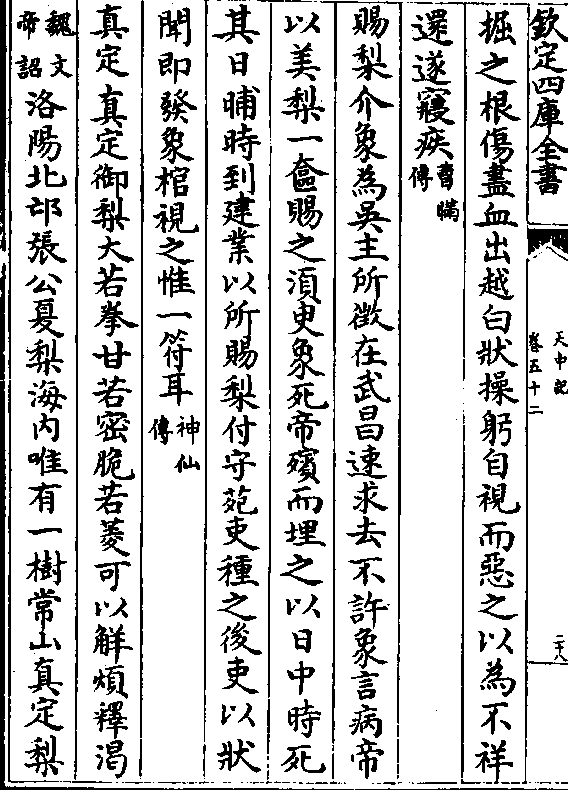 欽定四庫全書
天中記
卷五十二
二十八
掘之根傷盡血出越白狀操躬自視而惡之以為不祥
還遂寢疾曹瞞傳
賜梨介象為吳主所徵在武昌速求去不許象言病帝
以美梨一奩賜之須臾象死帝殯而埋之以日中時死
其日晡時到建業以所賜梨付守苑吏種之後吏以狀
聞即發象棺視之惟一符耳神仙傳
真定真定御梨大若拳甘若密脆若菱可以解煩釋渴
魏文帝詔洛陽北邙張公夏梨海內唯有一樹常山真定梨